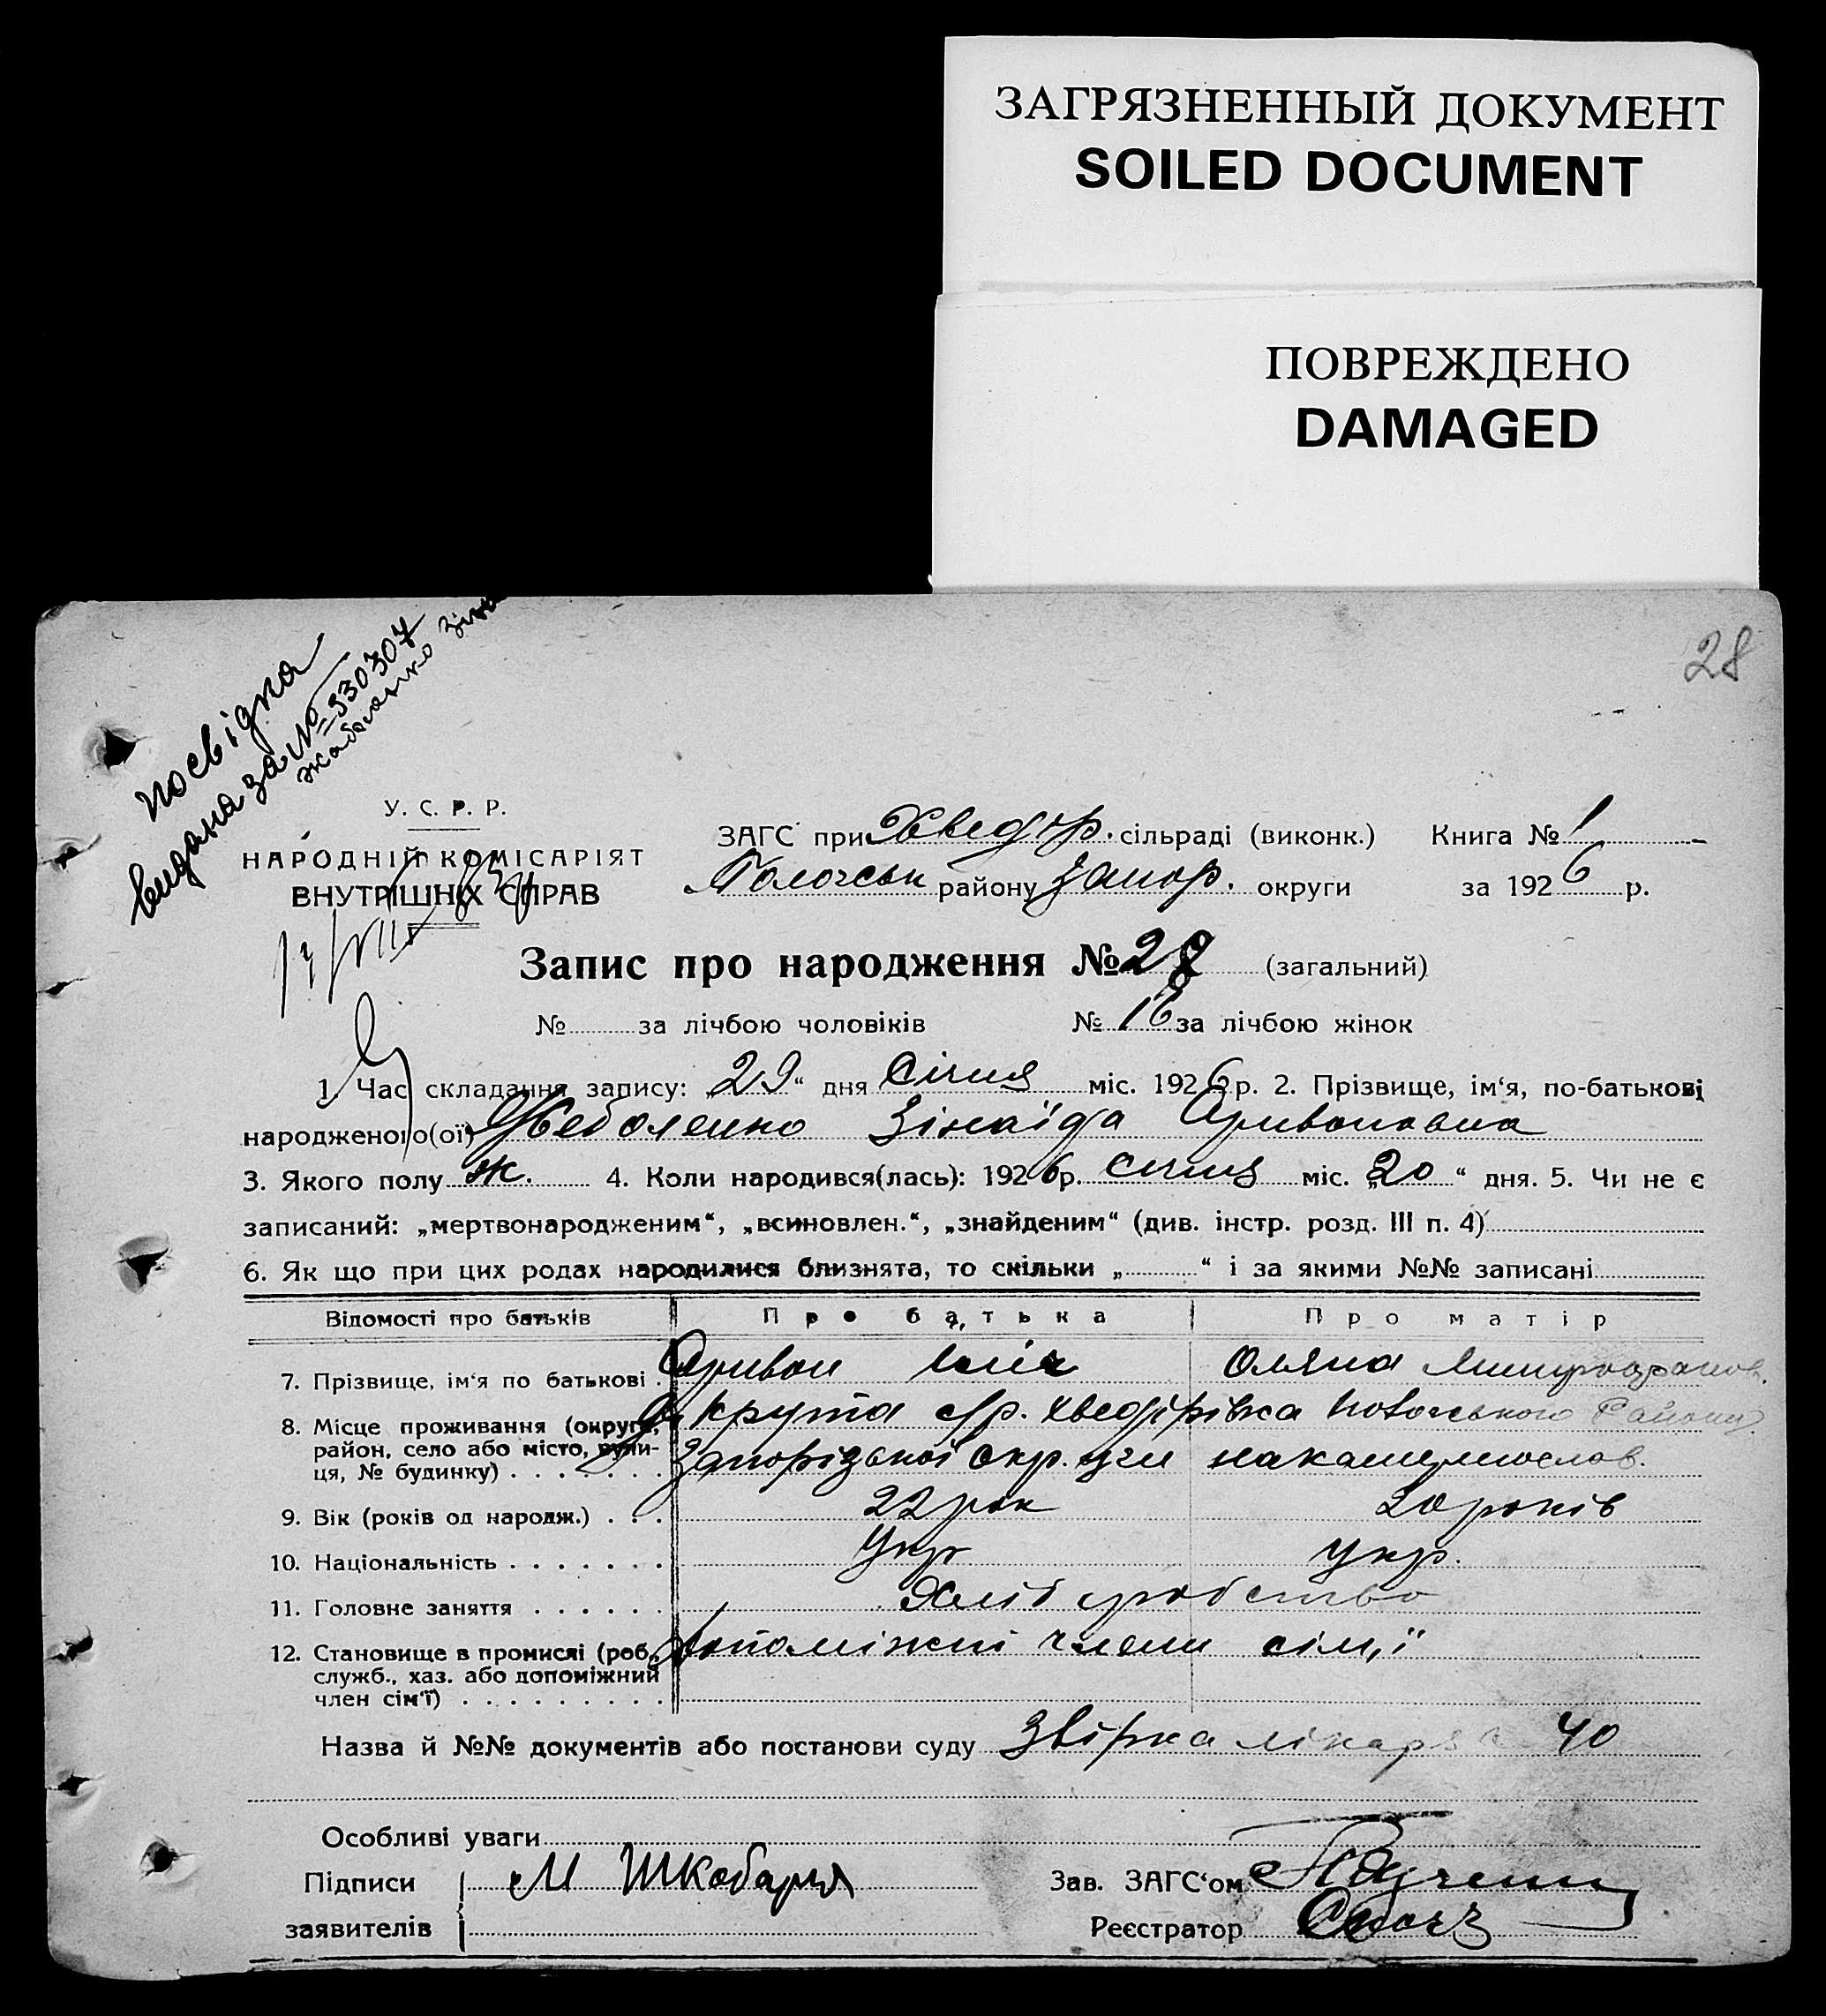 ЗАГРЯЗНЕННЫЙ ДОКУМЕНТ
SOILED DOCUMENT
ПОВРЕЖДЕНО
DAMAGED
28
посвідка
видана за № 330307
У. С. Р. Р.
НАРОДНІЙ КОМІСАРІЯТ
ВНУТРІШНІХ СПРАВ
ЗАГС при Хведор. сільраді (виконк.) Книга № 1
району Запор. округи за 1926 р.
Запис про народження № 28 (загальний)
№ за лічбою чоловіків № 16 за лічбою жінок
1. Час складання запису: „29“ дня Січня міс. 1926 р. 2. Прізвище, ім‘я, по-батькові
народженого(ої) Зінаїда
3. Якого полу ж. 4. Коли народився(лась): 1926 р. Січня міс. „20“ дня. 5. Чи не є
записаний: „мертвонародженим“, „всиновлен.“, „знайденим“ (див. інстр. розд. III п. 4)
6. Як що при цих родах народилися близнята, то скільки „ “ і за якими №№ записані
Відомості про батьків Про батька Про матір
7. Прізвище, ім‘я по батькові . Оляна
8. Місце проживання (округа, район, село або місто, вули-ця, № будинку) . . . . . . . с/р. Хведорівка
Запорізької Округи
9. Вік (років од народж.) . . . 22 рок 20 років
10. Національність . . . . . . . Укр укр.
11. Головне заняття . . . . . . Хліборобство
12. Становище в промислі (роб., служб., хаз. або допоміжний член сім‘ї) . . . . . . . . . Допоміжні члени сім,ї
Назва й №№ документів або постанови суду лікаря 40
Особливі уваги
Підписи М Шкабарня Зав. ЗАГС‘ом
заявителів Реєстратор